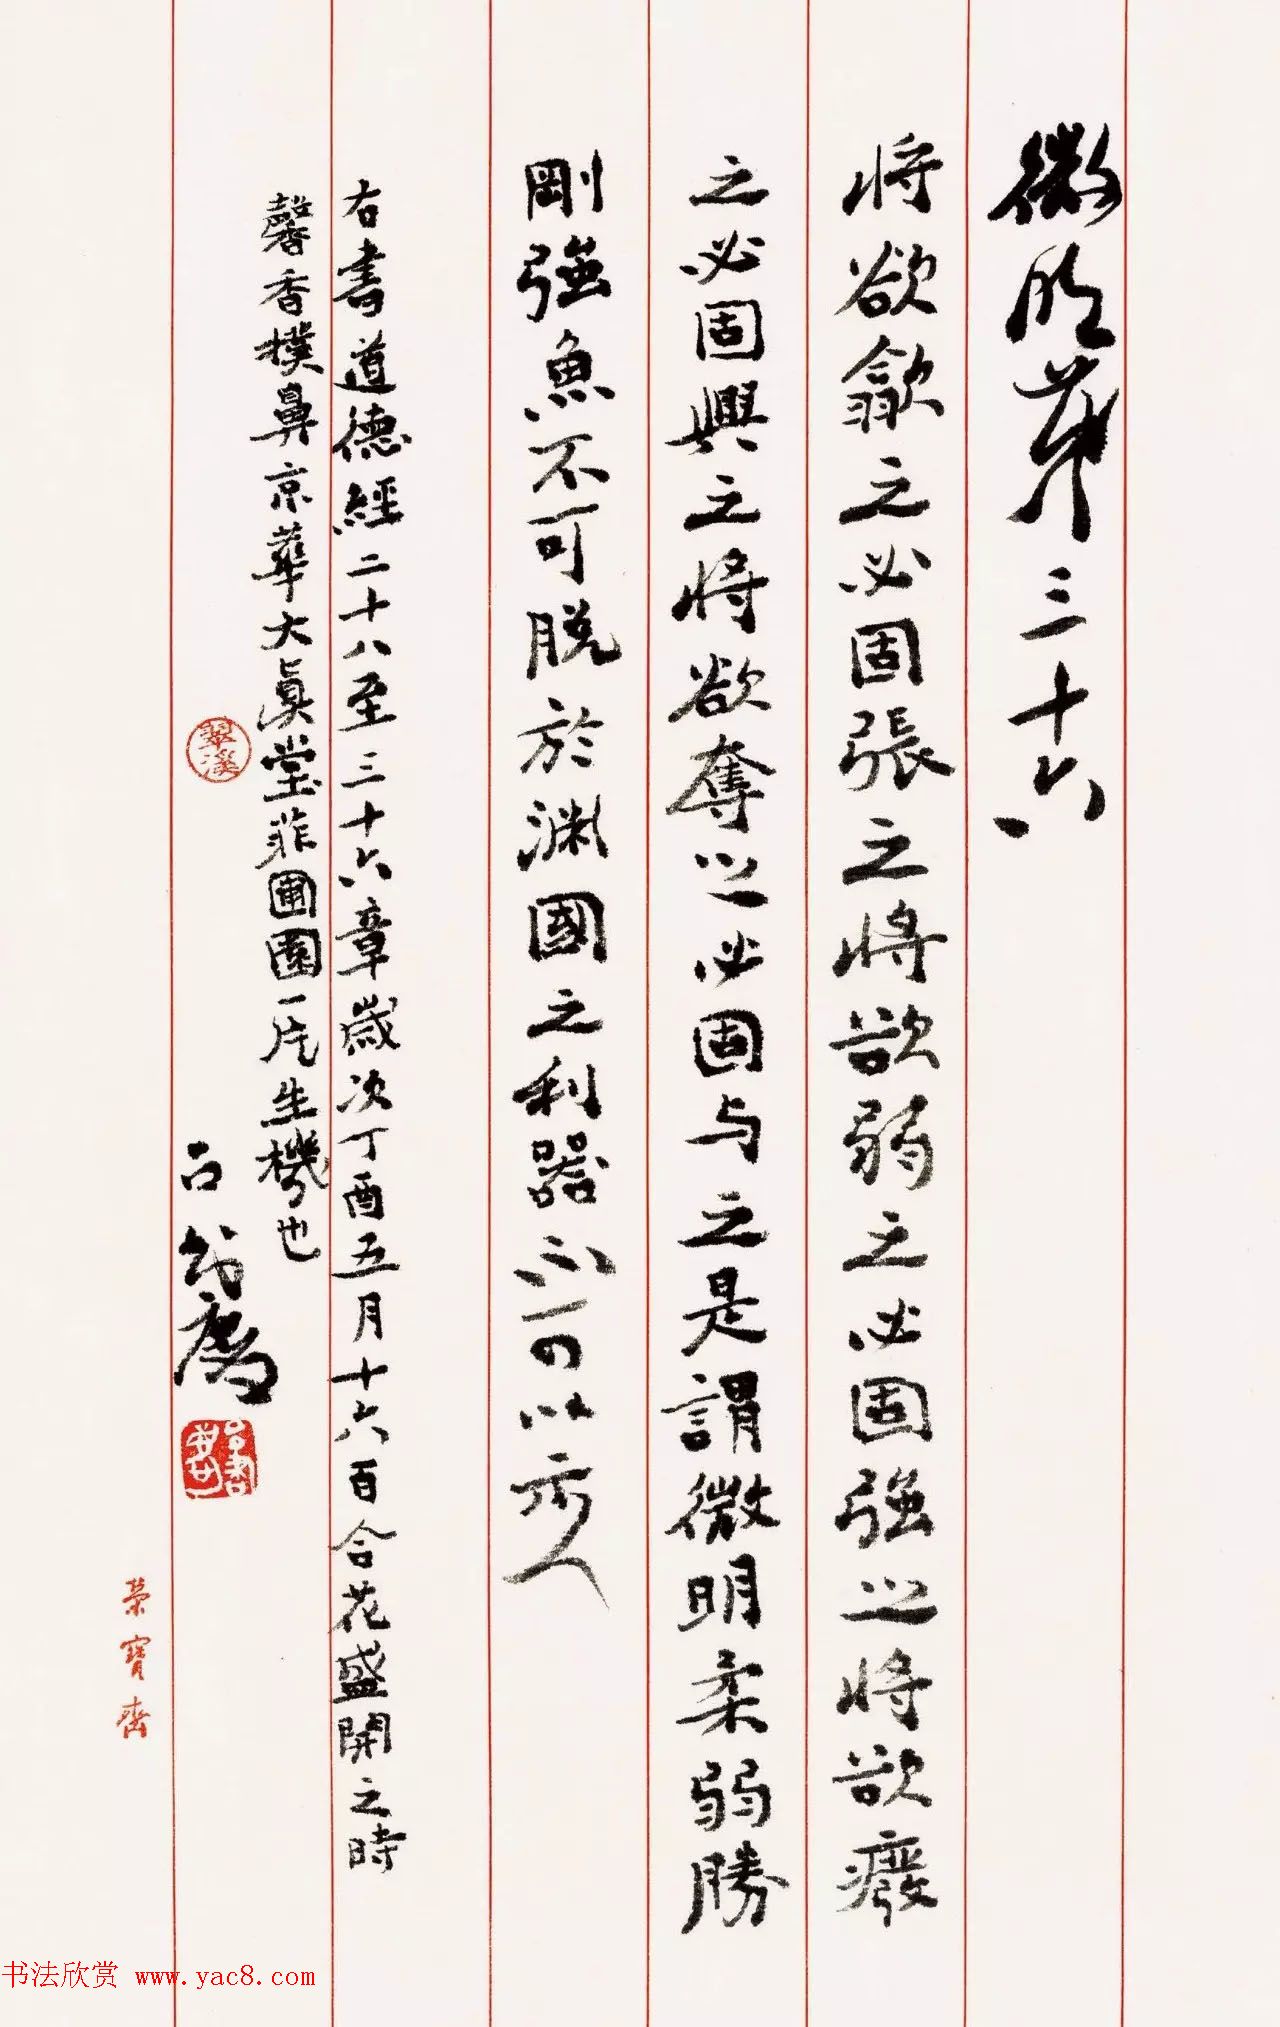 微明第三十六
将欲歙之必固張之将欲弱之必固強之将欲癈
之必固興之将欲奪之必固与之是謂微明柔弱勝
剛強魚不可脱於渊國之利器不可以示人
右書道德經二十八至三十六章歲次丁酉五月十六百合花盛開之時
馨香撲鼻京華大真堂菲圃園一片生機也
翠溪
榮寳齋
书法欣赏 www.yac8.com